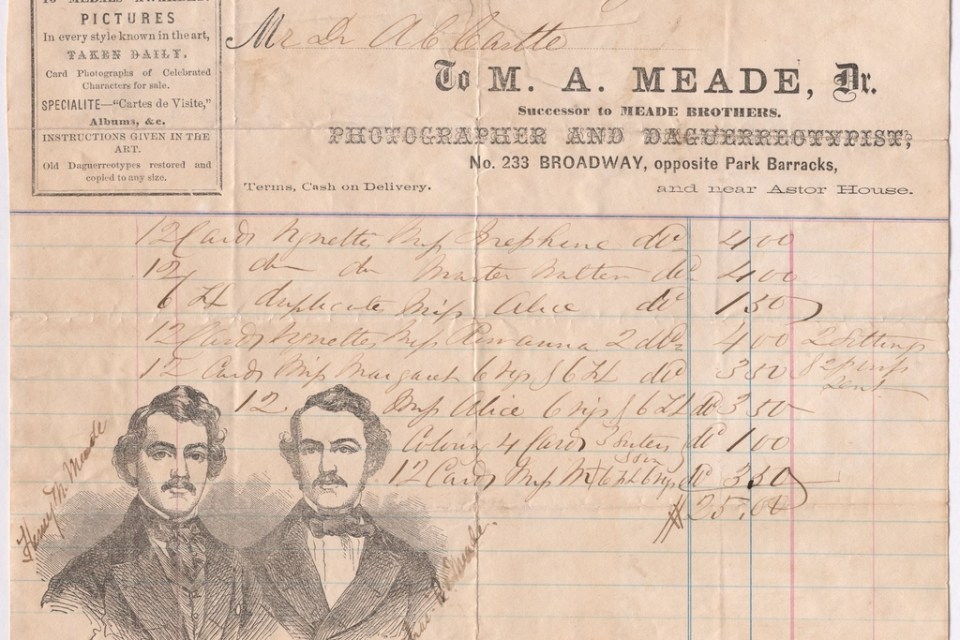 10 MEDALS AWARDED
PICTURES
In every style known in the art,
TAKEN DAILY.
Card Photographs of Celebrated
Characters for sale.
SPECIALITE—"Cartes de Visite,"
Albums, &c.
INSTRUCTIONS GIVEN IN THE
ART.
Old Daguerreotypes restored and
copied to any size.
Mr Dr A C Castle
To M. A. MEADE, Dr.
Successor to MEADE BROTHERS.
PHOTOGRAPHER AND DAGUERREOTYPIST,
No. 233 BROADWAY, opposite Park Barracks,
Terms, Cash on Delivery.
and near Astor House.
12 Cards Vignettes Miss Josephine do 4 00
12 do do Master do 4 00
6 duplicate Miss Alice do 1 50
12 Cards Vignettes Miss 2 do 4 00 2 Sittings
12 Cards Miss Margaret 6 Vigs & 6 do 3 50 sent
12 Miss Alice 6 vigs & 6 do 3 50
Coloring 4 Cards do 1 00
12 Cards Miss do 3 50
$25.00
Henry M. Meade
Meade.